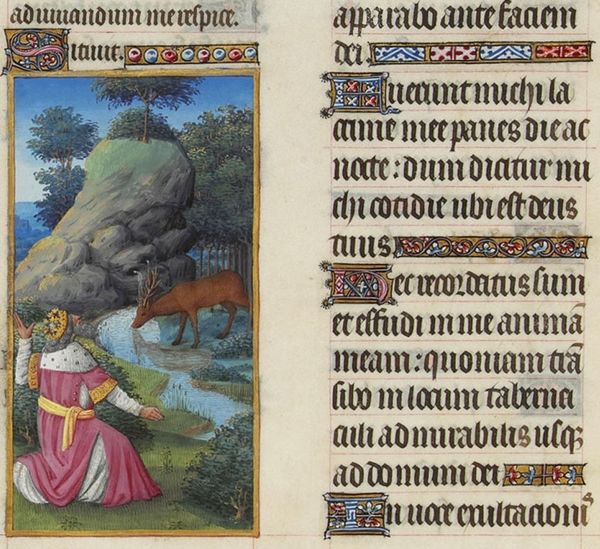 adiuuandum me respice.
Sitiuit.
apparabo ante faciem
dei.
Fuerunt michi la
crime mee panes die ac
nocte: dum dicitur mi
chi cotidie ubi est deus
tuus.
Hec recordatus sum
et effudi in me animã
meam: quoniam trã
sibo in locum taberna
culi admirabilis usqȝ
ad domum dei
In uoce exultacionis